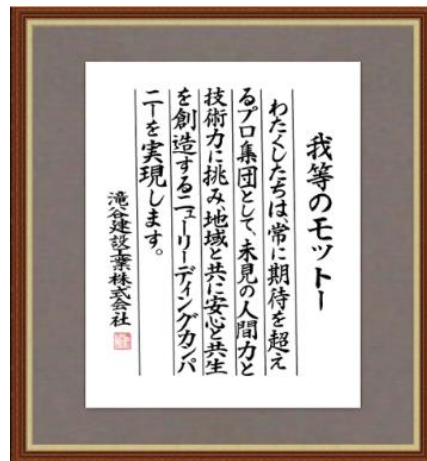 我等のモットー
わたくしたちは、常に期待を超え
るプロ集団として、未見の人間力と
技術力に挑み、地域と共に安心と共生
を創造するニューリーディングカンパ
ニーを実現します。
滝谷建設工業株式会社